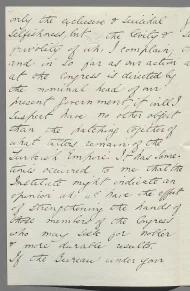 only the exclusive & suicidal
selfishness, but the levity &
frivolity of wh: I complain,
and in so far as our action
at the Congress is directed by
the nominal head of our
present Government it will I
suspect have no other object
than the patching together of
what tatters remain of the
Turkish Empire. It has some-
times occurred to me that the
Institute might indicate an
opinion wh: wd have the effect
of strengthening the hands of
those members of the Congress
who may seek for nobler
& more durable results.
If the Bureau under your